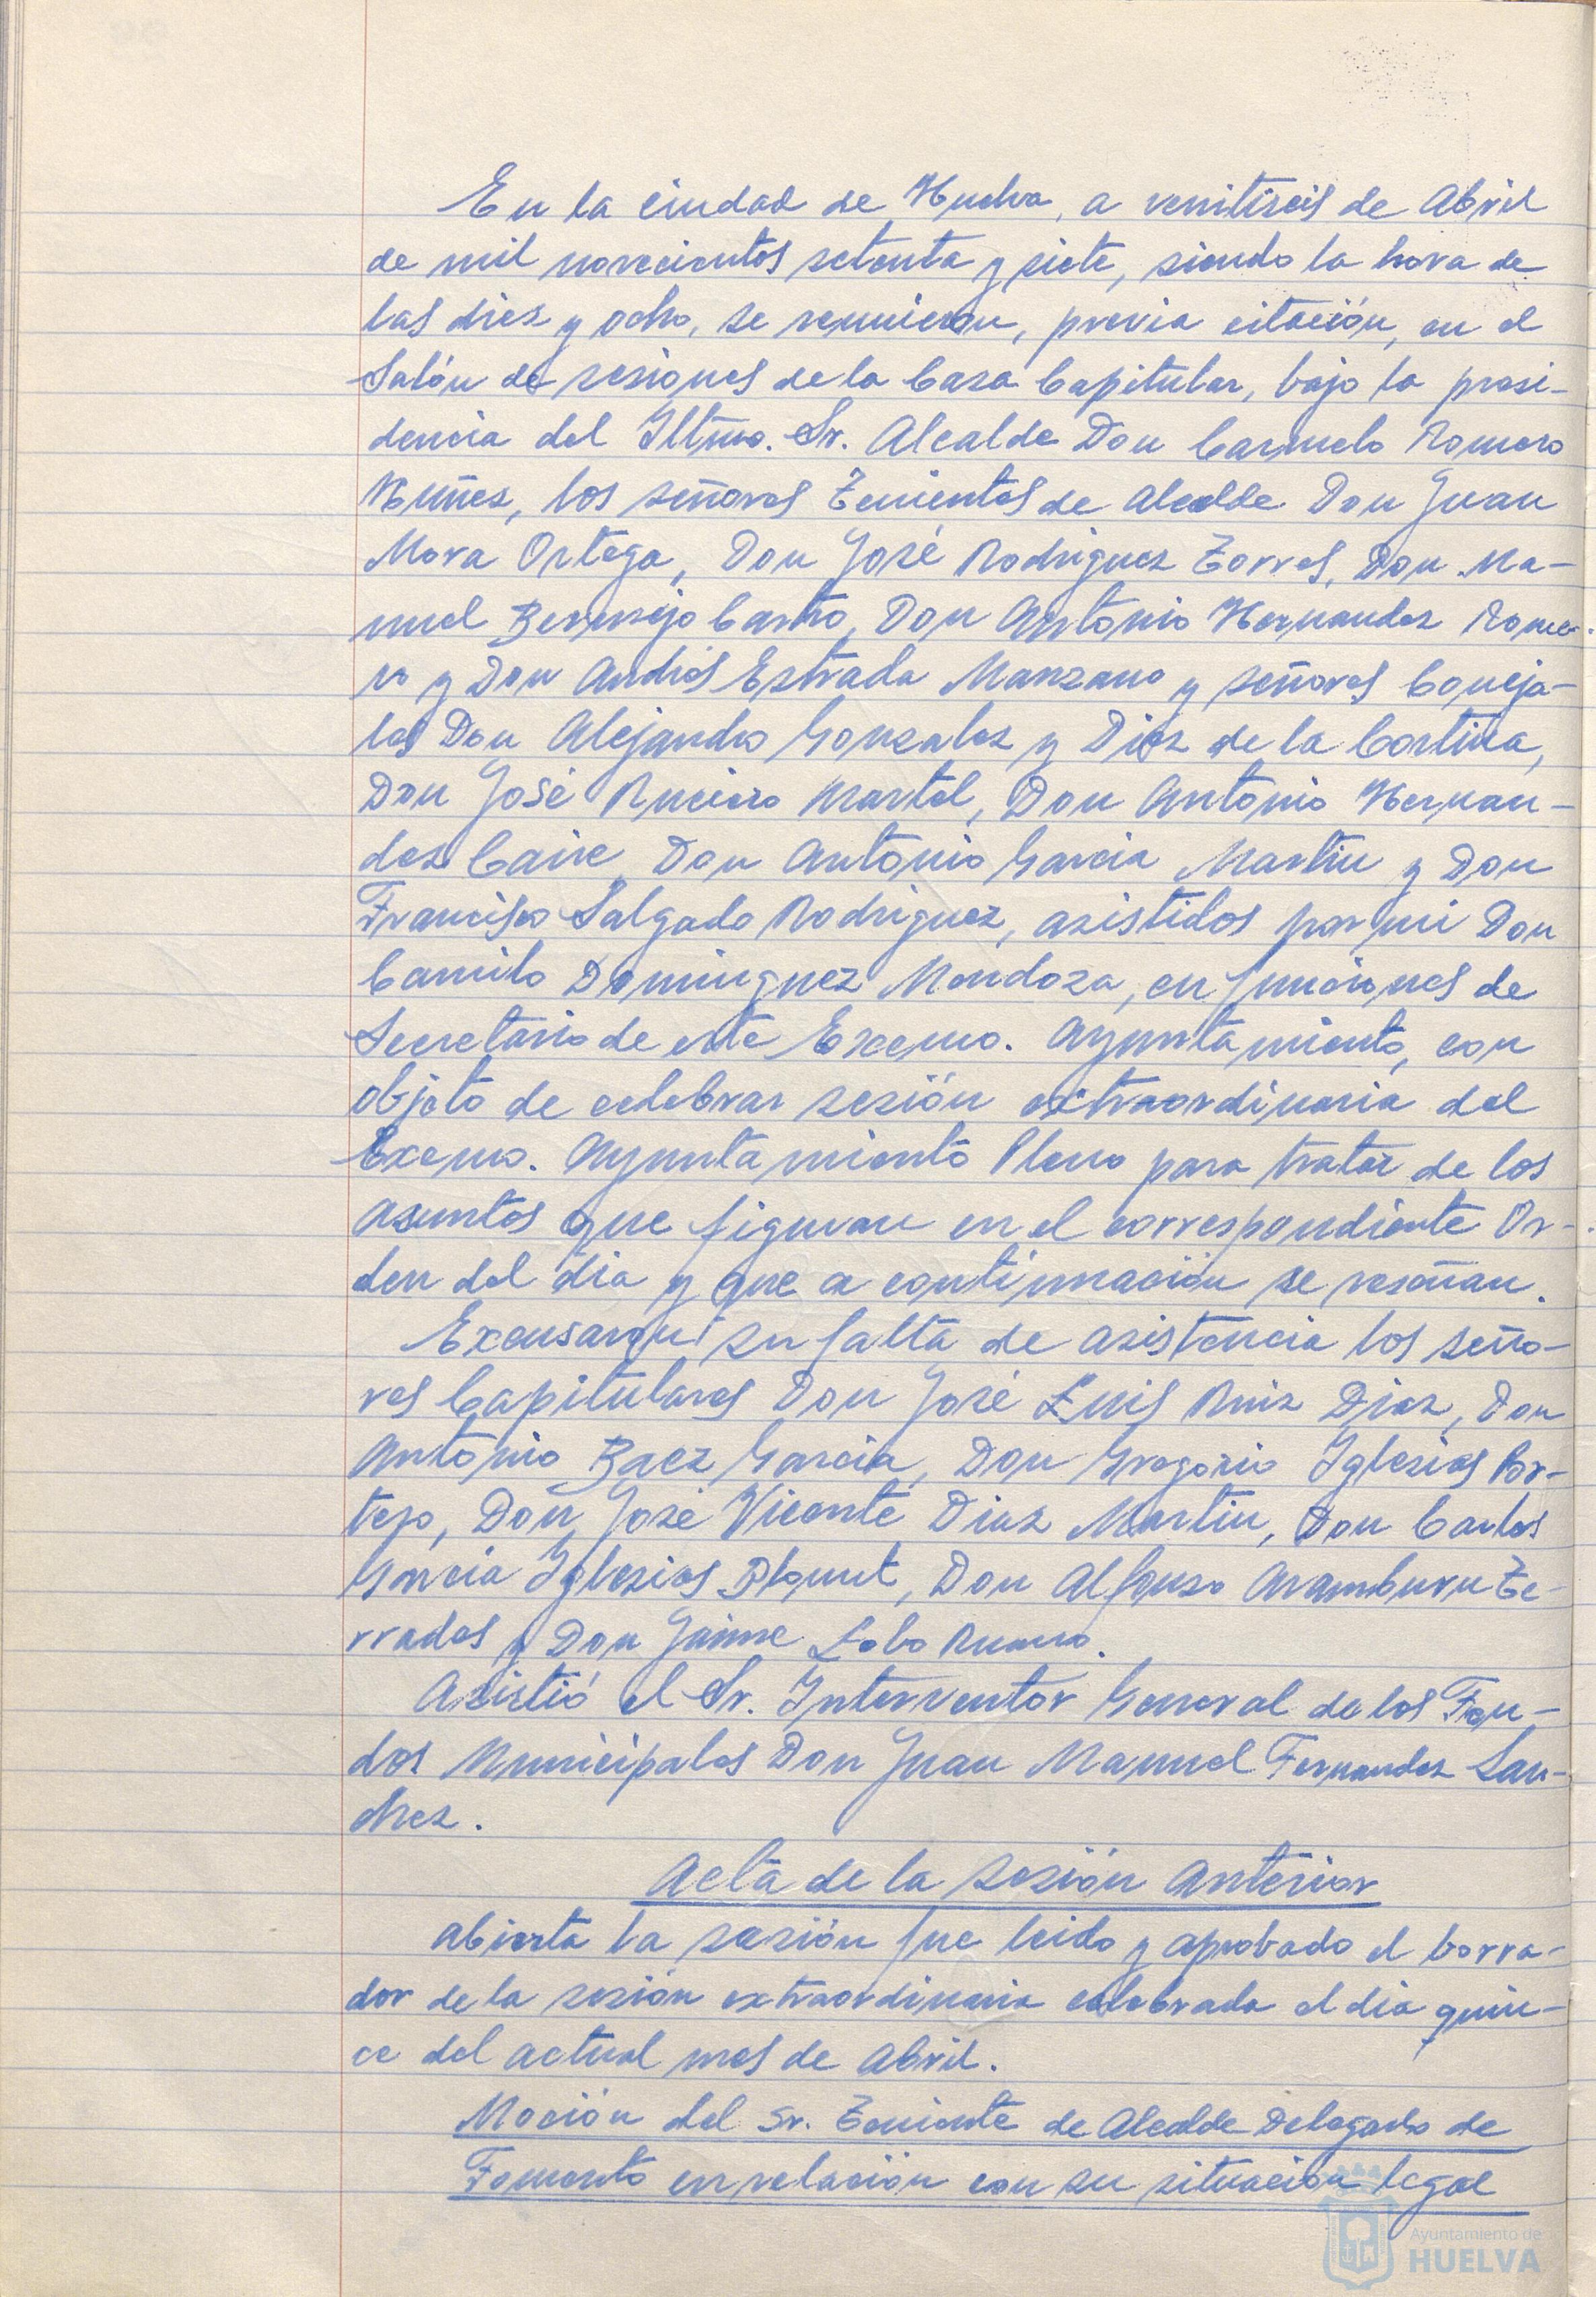 En la ciudad de Huelva, a veintiseis de Abril
de mil novecientos setenta y siete, siendo la hora de
las diez y ocho, se reunieron, previa citación, en el
Salón de sesiones de la Casa Capitular, bajo la presi-
dencia del Iltmo. Sr. Alcalde Don Carmelo Romero
Nuñez, los señores Tenientes de Alcalde Don Juan
Mora Ortega, Don José Rodriguez Torres, Don Ma-
nuel Bermejo Castro, Don Antonio Hernandez Rome-
ro y Don Andrés Estrada Manzano y señores Conceja-
les Don Alejandro Gonzalez y Diez de la Cortina,
Don José Ruciero Martel, Don Antonio Hernan-
dez Caire, Don Antonio Garcia Martin y Don
Francisco Salgado Rodriguez, asistidos por mi Don
Camilo Dominguez Mendoza, en funciones de
Secretario de este Excmo. Ayuntamiento, con
objeto de celebrar sesión extraordinaria del
Excmo. Ayuntamiento Pleno para tratar de los
asuntos que figuran en el correspondiente Or-
den del dia y que a continuación se reseñan.
Excusaron su falta de asistencia los seño-
res Capitulares Don José Luis Ruiz Diaz, Don
Antonio Baez Garcia, Don Gregorio Iglesias Por-
tejo, Don José Vicente Diaz Martin, Don Carlos
Garcia Iglesias, Don Alfonso Aramburu Te-
rrades y Don Jaime Lobo Ruano.
Asistió el Sr. Interventor General de los Fon-
dos Municipales Don Juan Manuel Fernandez San-
chez.
Acta de la sesión anterior
Abierta la sesión fue leido y aprobado el borra-
dor de la sesión extraordinaria celebrada el dia quin-
ce del actual mes de Abril.
Moción del Sr. Teniente de Alcalde Delegado de
Fomento en relación con su situación legal
Ayuntamiento de
HUELVA